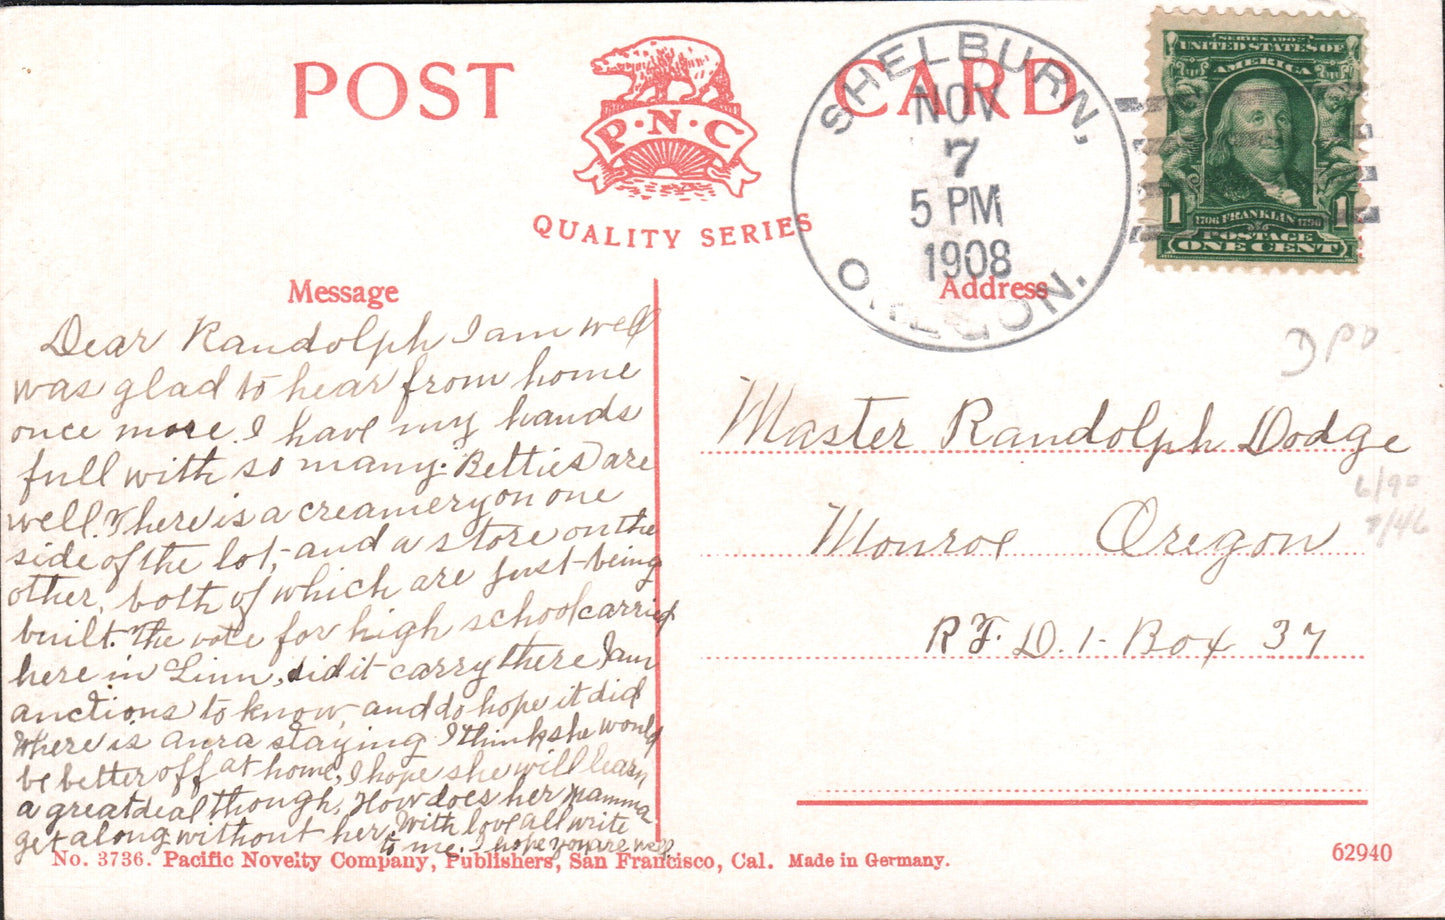 POST CARD
P·N·C
QUALITY SERIES
SHELBURN,
NOV
7
5 PM
1908
OREGON.
UNITED STATES OF
AMERICA
1 1706 FRANKLIN 1790 1
POSTAGE
ONE CENT
Message
Address
Dear Randolph I am well
was glad to hear from home
once more. I have my hands
full with so many. Betties are
well. There is a creamery on one
side of the lot, and a store on the
other, both of which are just being
built. The vote for high school carried
here in Linn, did it carry there I am
anctions to know, and do hope it did
Where is staying I think she would
be better off at home, I hope she will learn
a great deal though. How does her mamma
get along without her, With love all write
to me. I hope you are well
DPO
Master Randolph Dodge
6/90
7/46
Monroe Oregon
R.F.D. 1- Box 37
No. 3736. Pacific Novelty Company, Publishers, San Francisco, Cal. Made in Germany.
62940